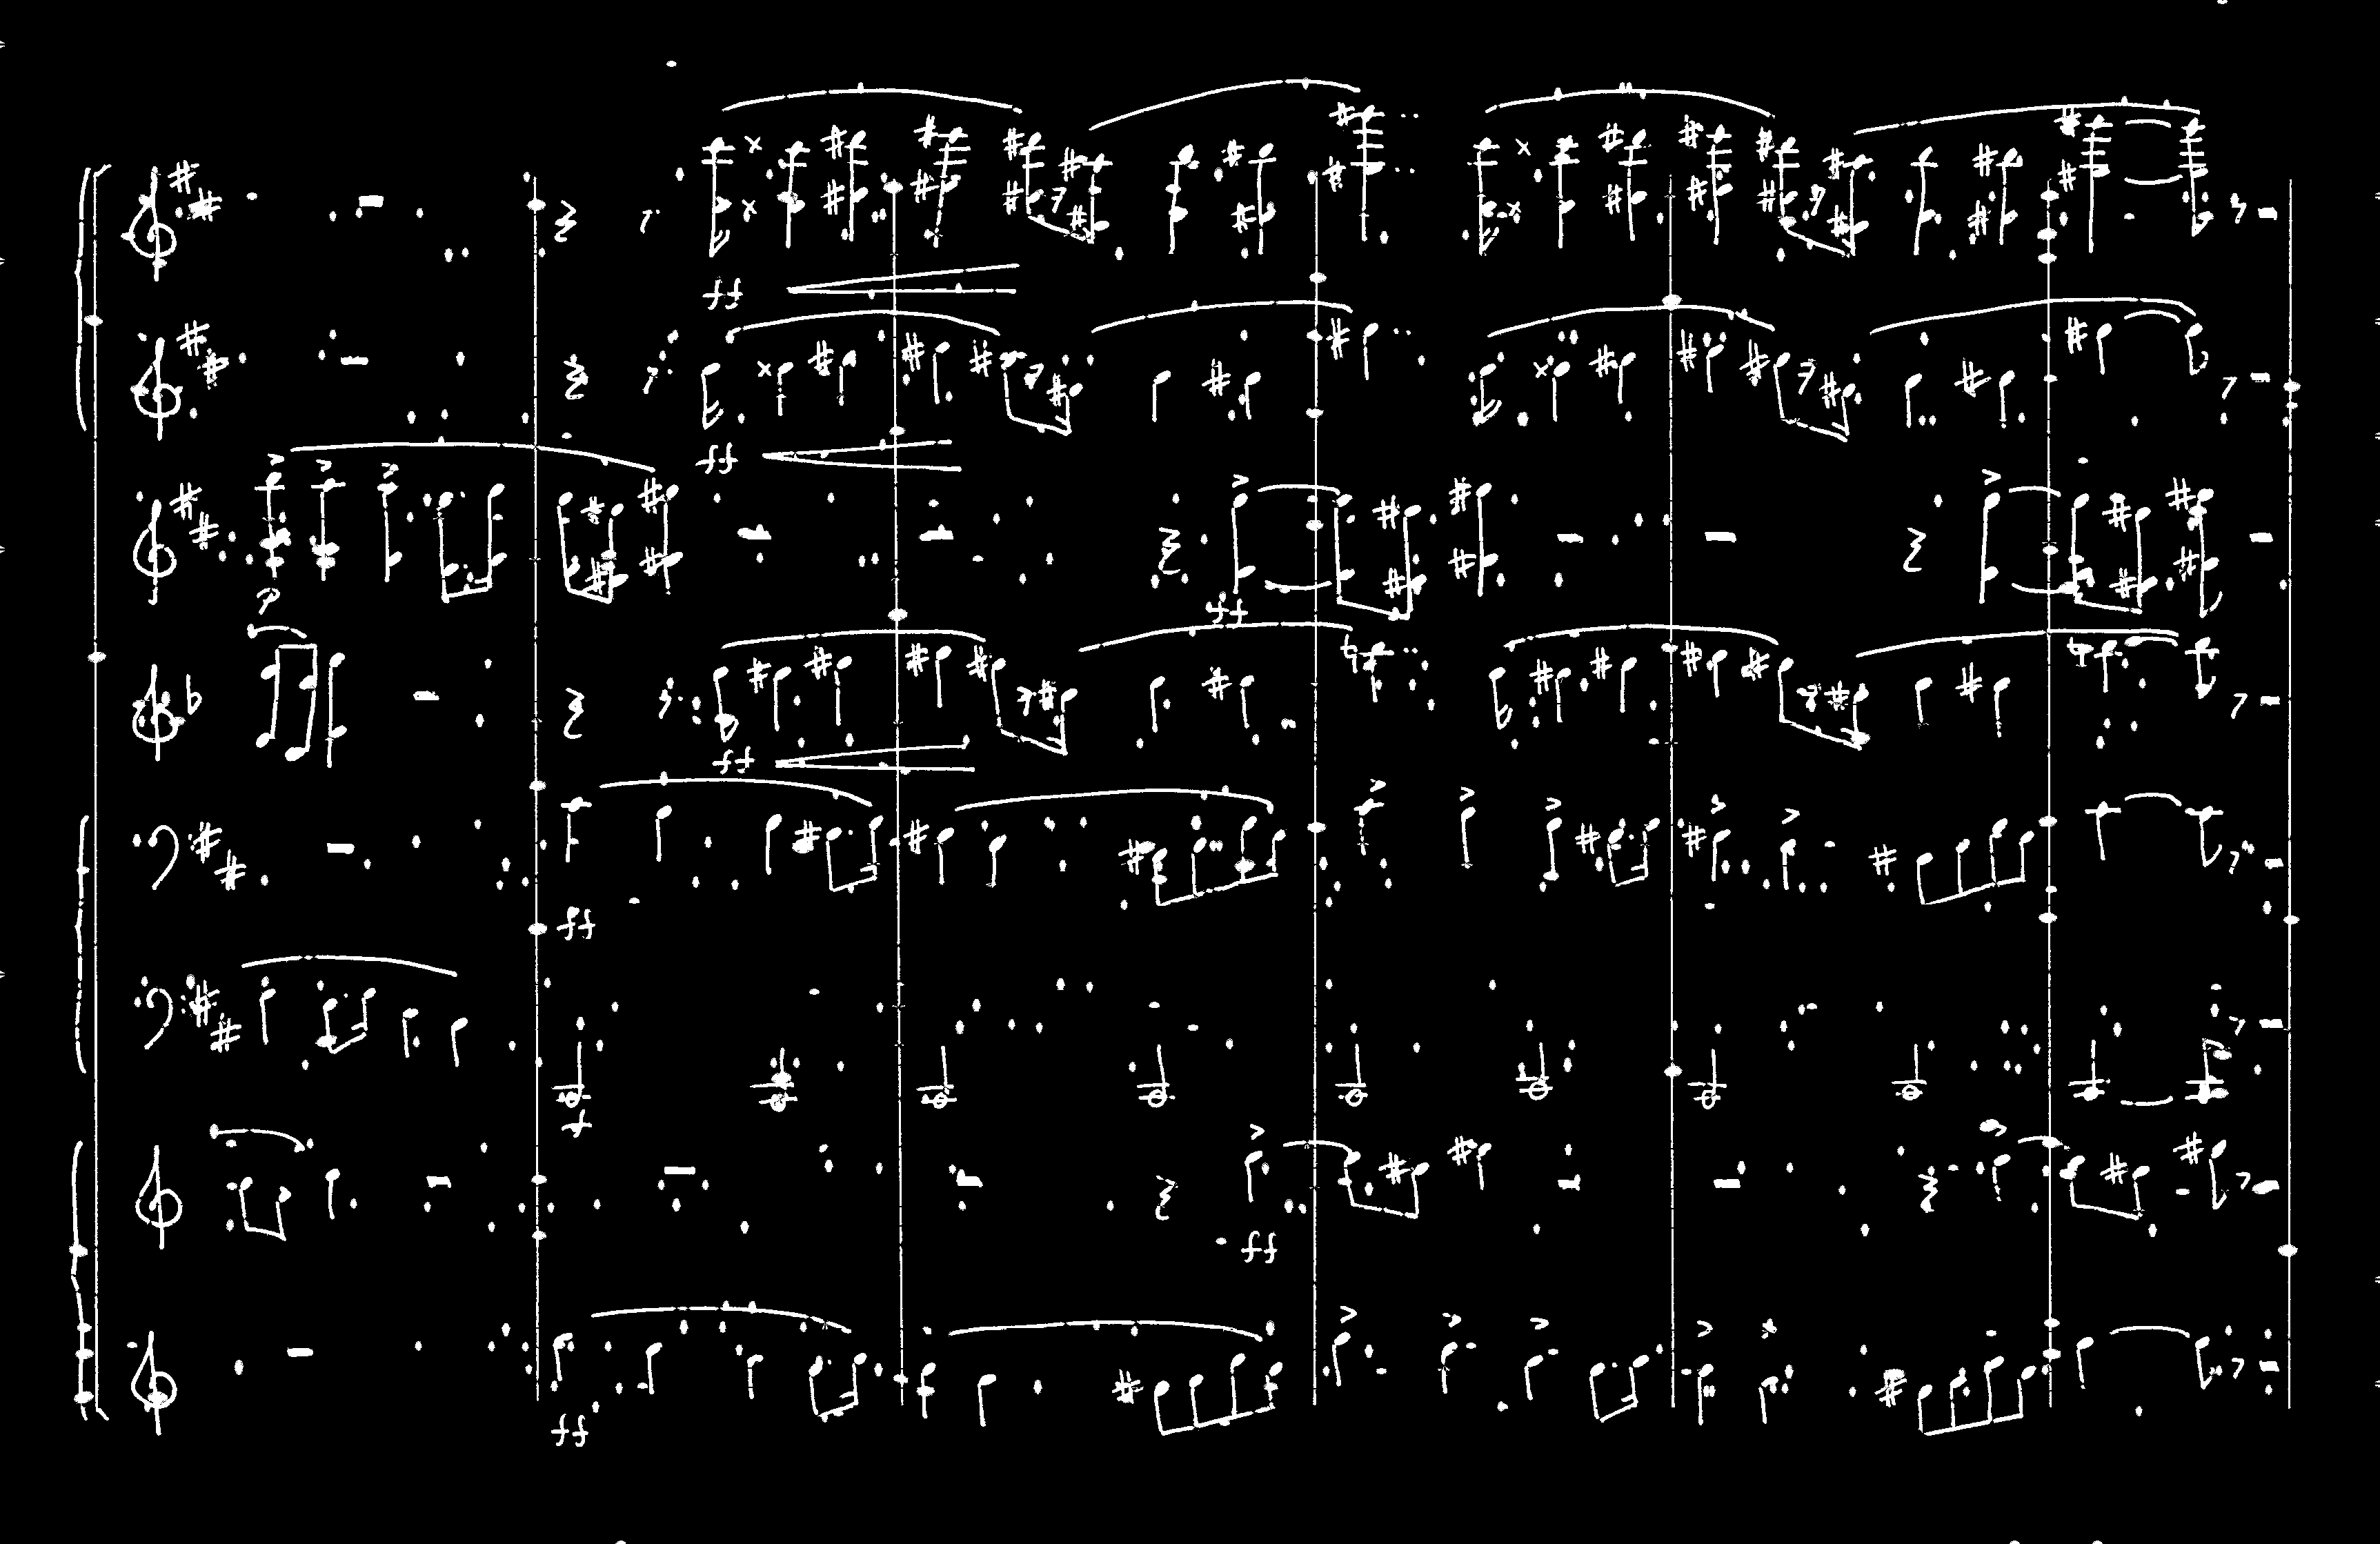 ff
ff
p
ff
ff
ff
f
ff
ff